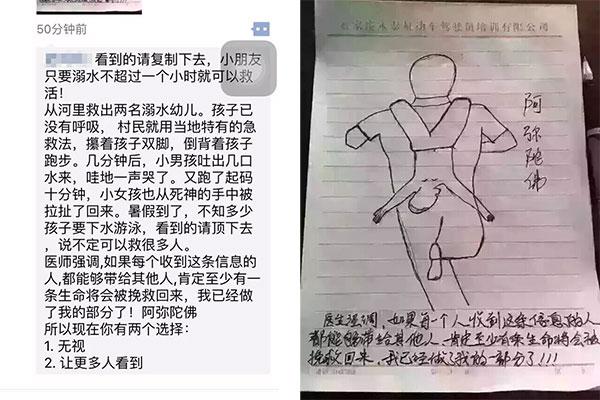 50分钟前
看到的请复制下去，小朋友
只要溺水不超过一个小时就可以救
活！
从河里救出两名溺水幼儿。孩子已
没有呼吸， 村民就用当地特有的急
救法，攥着孩子双脚，倒背着孩子
跑步。几分钟后，小男孩吐出几口
水来，哇地一声哭了。又跑了起码
十分钟，小女孩也从死神的手中被
拉扯了回来。暑假到了，不知多少
孩子要下水游泳，看到的请顶下去
，说不定可以救很多人。
医师强调,如果每个收到这条信息的
人,都能够带给其他人,肯定至少有一
条生命将会被挽救回来，我已经做
了我的部分了！阿弥陀佛
所以现在你有两个选择：
1. 无视
2. 让更多人看到
机动车驾驶员培训有限公司
阿
弥
陀
佛
医生强调，如果每一个人收到这条信息的人
都能够带给其他人一肯定至少有条生命将会被
挽救回来，我已经做了我的一部分了!!!